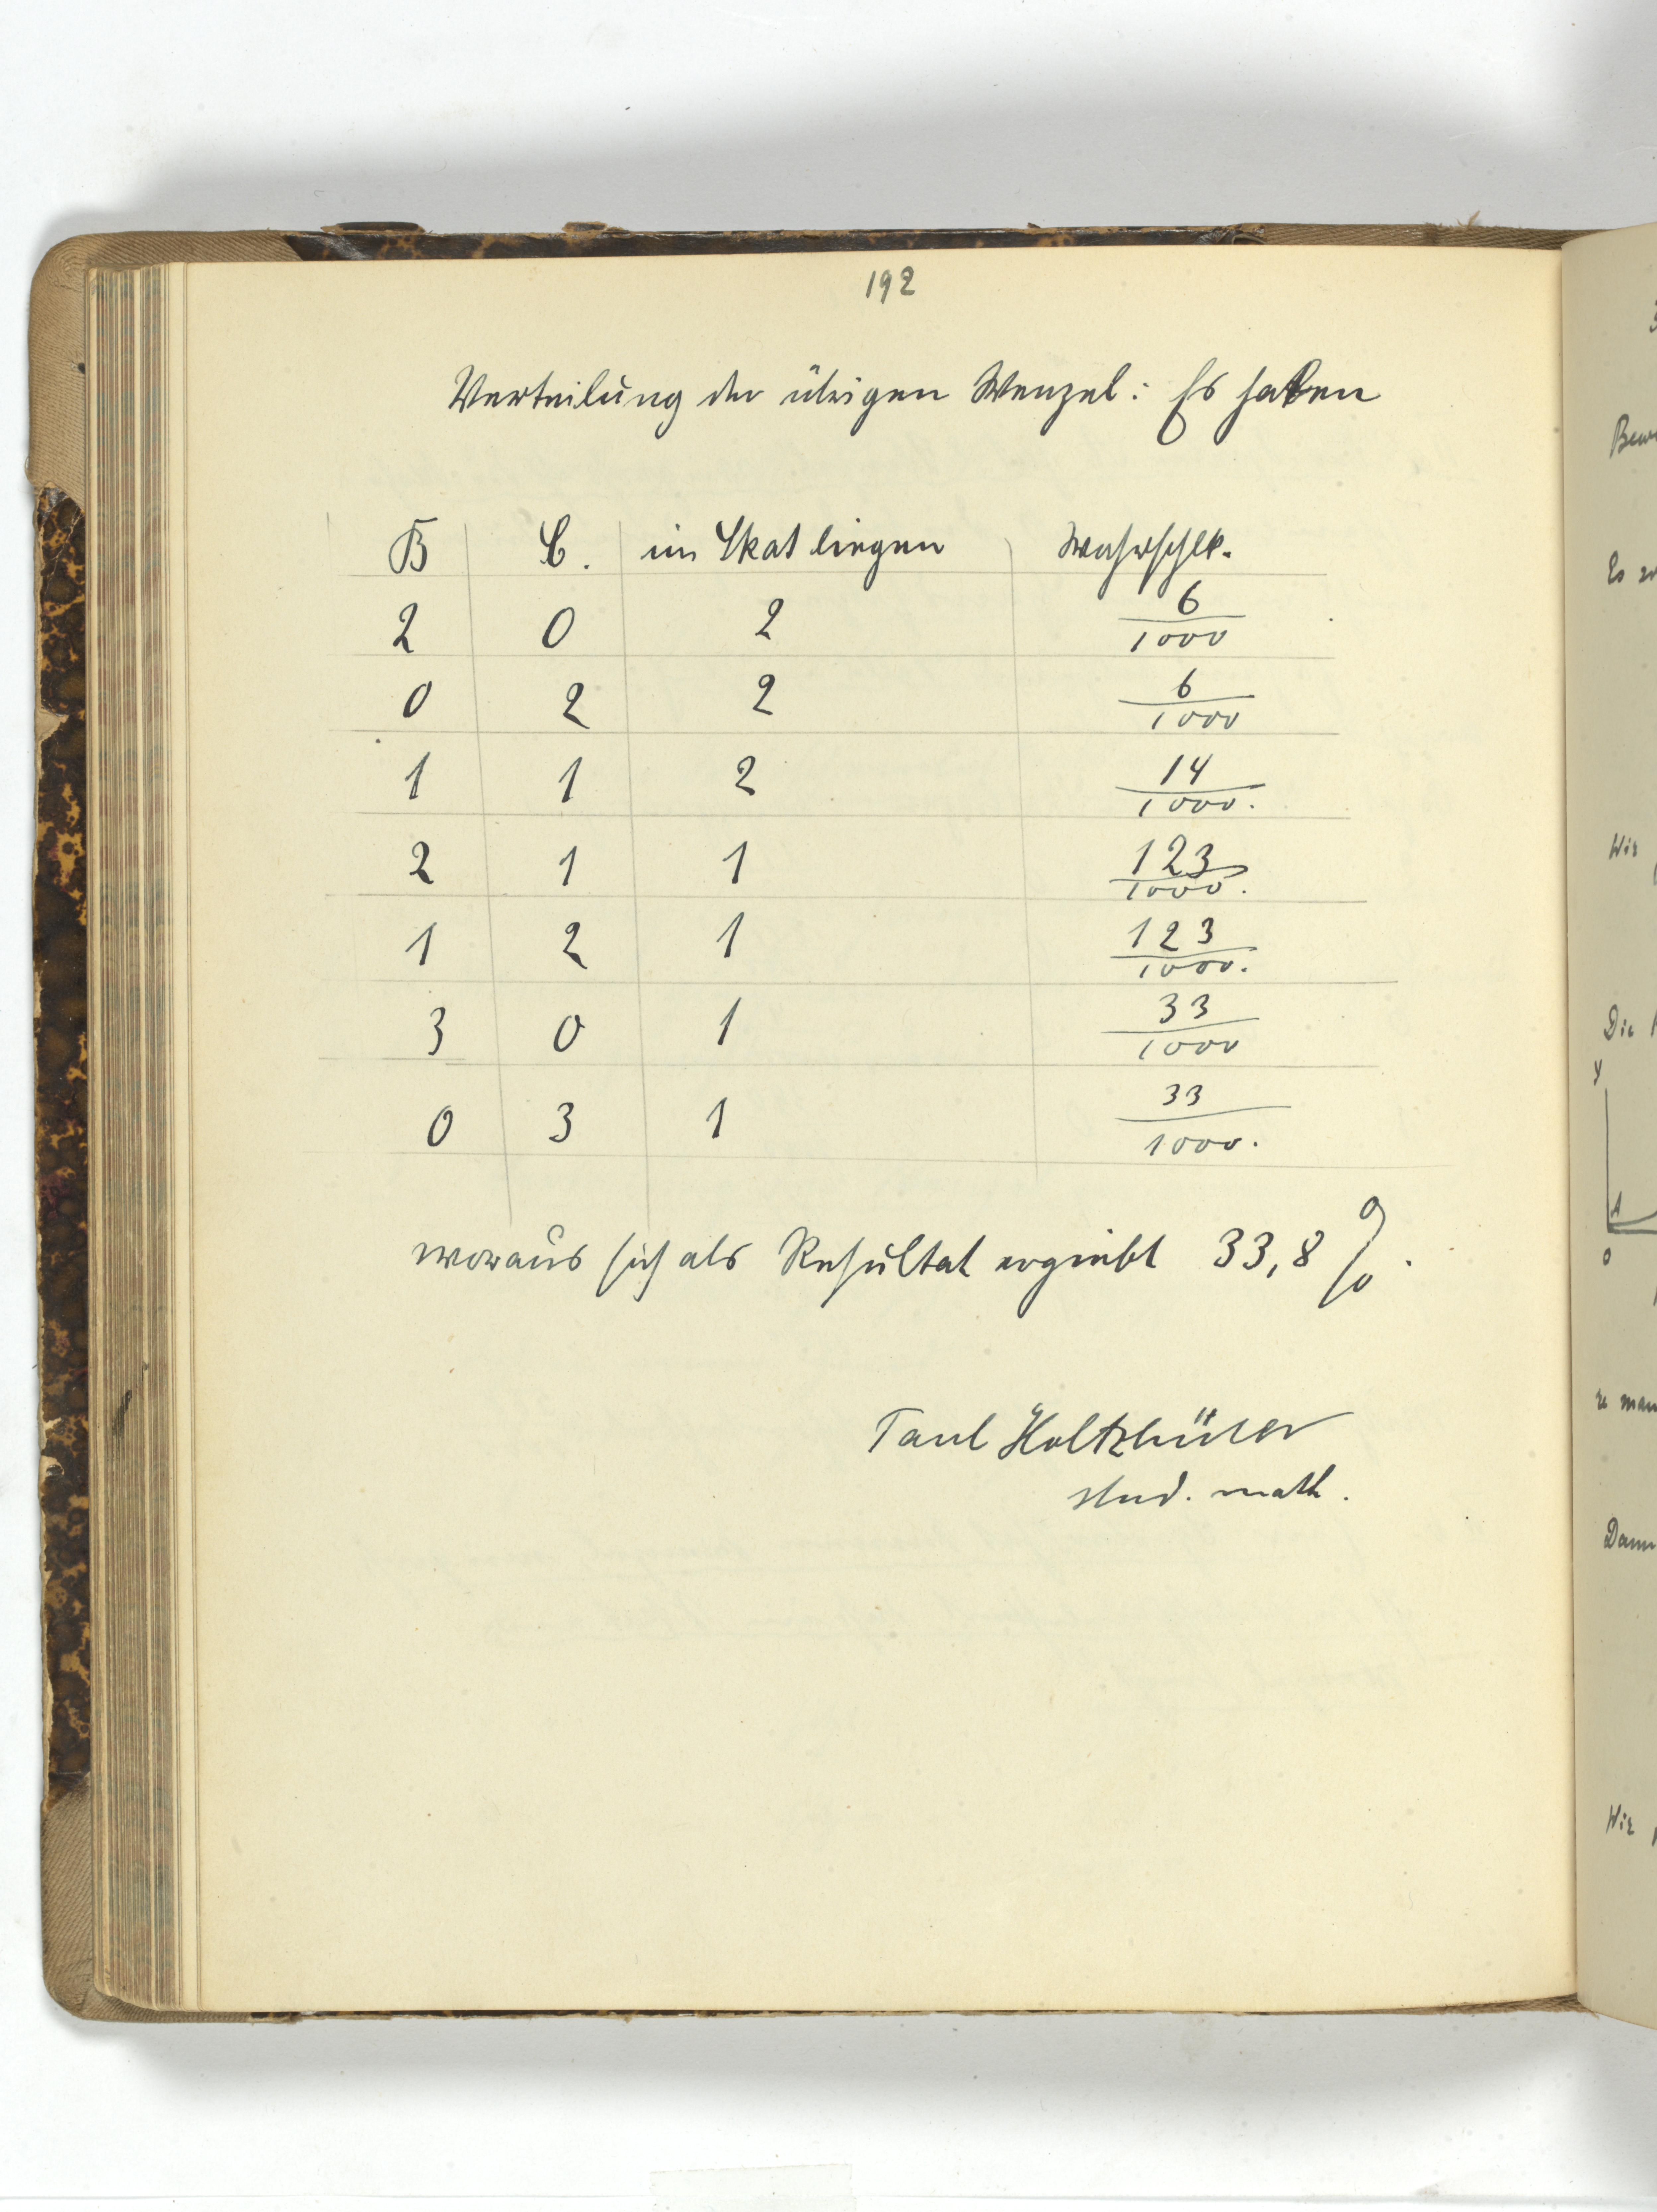 192
Verteilung der übrigen Wenzel: Es haben
B C. im Skat liegen Wahrschlk.
2 0 2 6/1000
0 2 2 6/1000
1 1 2 14/1000.
2 1 1 123/1000.
1 2 1 123/1000.
3 0 1 33/1000
0 3 1 33/1000.
woraus sich als Resultat ergiebt 33,8 %.
Paul
stud. math.
Es
Wir
Die
y
A
0
man
Dann
Wir